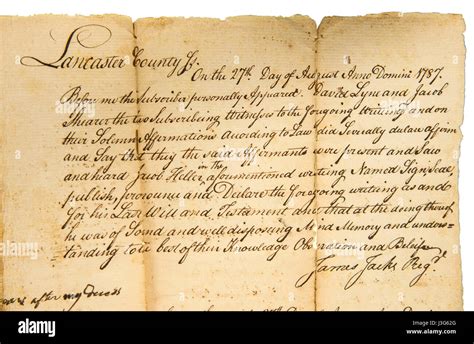 Lancaster County Ss.
On the 27th Day of August Anno Domini 1787.
Before me the Subscriber personally Appeared David Lyne and Jacob
Shearer the two Subscribing Witnesses to the foregoing Writing and on
their Solemn Affirmations According to Law did Severally declare affirm
and Say that they the said Affirmants were present and Saw
and heard Jacob Heller in the aforementioned writing Named Sign, Seal,
publish, pronounce and Declare the foregoing writing as and
for his Last Will and Testament and that at the doing thereof
he was of Sound and well disposing Mind Memory and under-
standing to the best of their Knowledge Observation and Belief
James Jacks Regr.
after my Decease
alamy stock photo
J3G62G
www.alamy.com